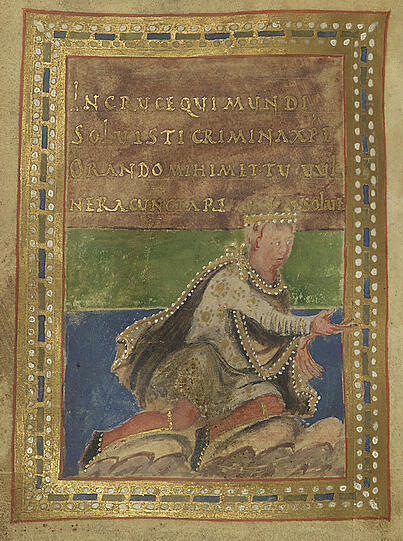 INCRUCEQUIMUNDI
SOLUISTICRIMINAXPE
ORANDOMIHIMETTUUUL
NERACUNCTA SOLUE